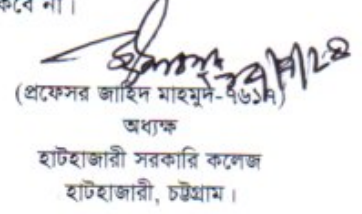 না।
(প্রফেসর জাহিদ মাহমুদ-৭৬১৭)
অধ্যক্ষ
হাটহাজারী সরকারি কলেজ
হাটহাজারী, চট্টগ্রাম।